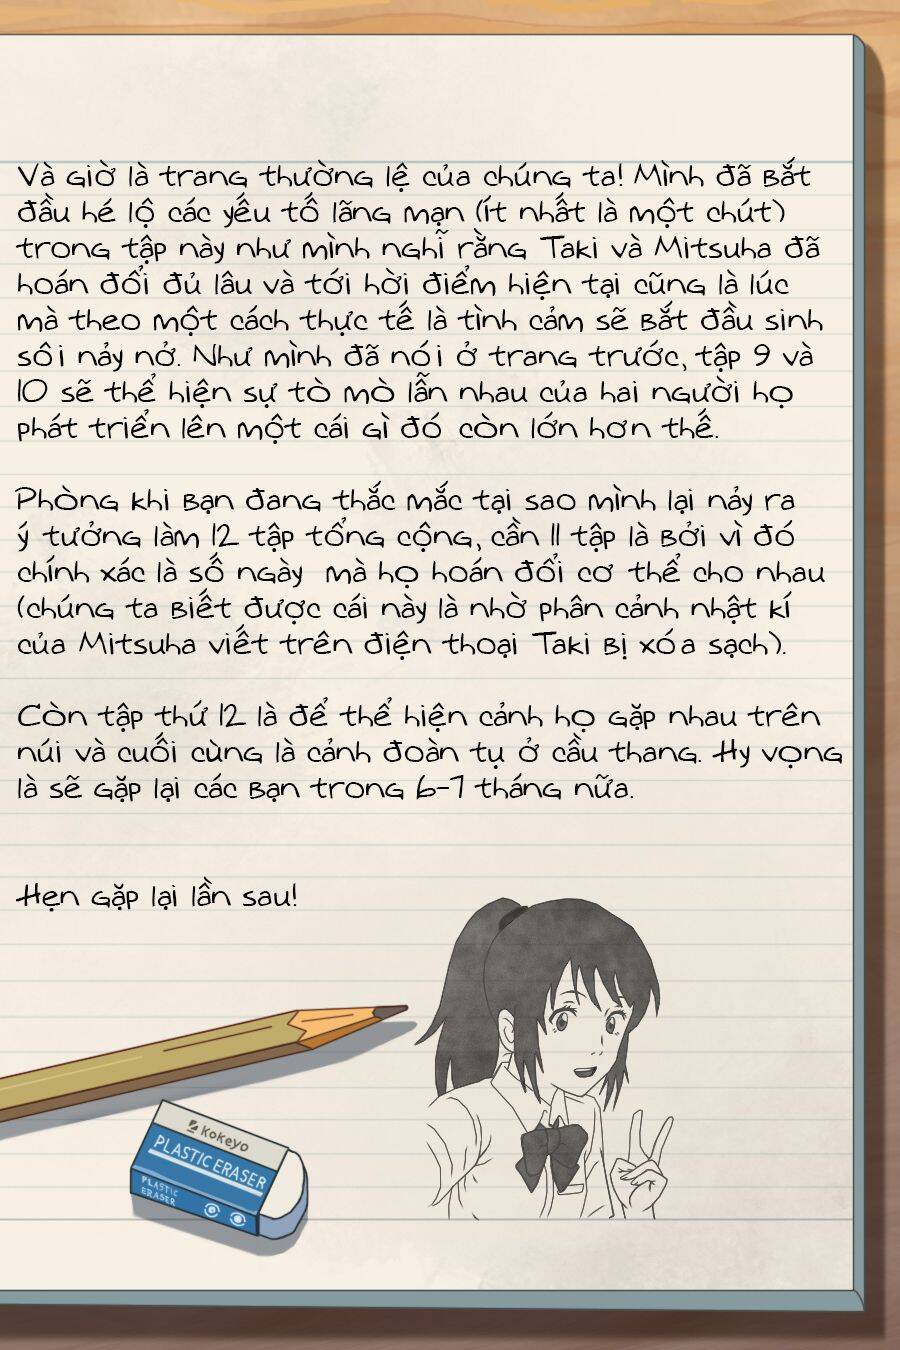 Và giờ là trang thường lệ của chúng ta! Mình đã bắt
đầu hé lộ các yếu tố lãng mạn (ít nhất là một chút)
trong tập này như mình nghĩ rằng Taki và Mitsuha đã
hoán đổi đủ lâu và tới hời điểm hiện tại cũng là lúc
mà theo một cách thực tế là tình cảm sẽ bắt đầu sinh
sôi nảy nở. Như mình đã nói ở trang trước, tập 9 và
10 sẽ thể hiện sự tò mò lẫn nhau của hai người họ
phát triển lên một cái gì đó còn lớn hơn thế.
Phòng khi bạn đang thắc mắc tại sao mình lại nảy ra
ý tưởng làm 12 tập tổng cộng, cần 11 tập là bởi vì đó
chính xác là số ngày mà họ hoán đổi cơ thể cho nhau
(chúng ta biết được cái này là nhờ phân cảnh nhật kí
của Mitsuha viết trên điện thoại Taki bị xóa sạch).
Còn tập thứ 12 là để thể hiện cảnh họ gặp nhau trên
núi và cuối cùng là cảnh đoàn tụ ở cầu thang. Hy vọng
là sẽ gặp lại các bạn trong 6-7 tháng nữa.
Hẹn gặp lại lần sau!
KOKEYO
PLASTIC ERASER
PLASTIC
ERASER